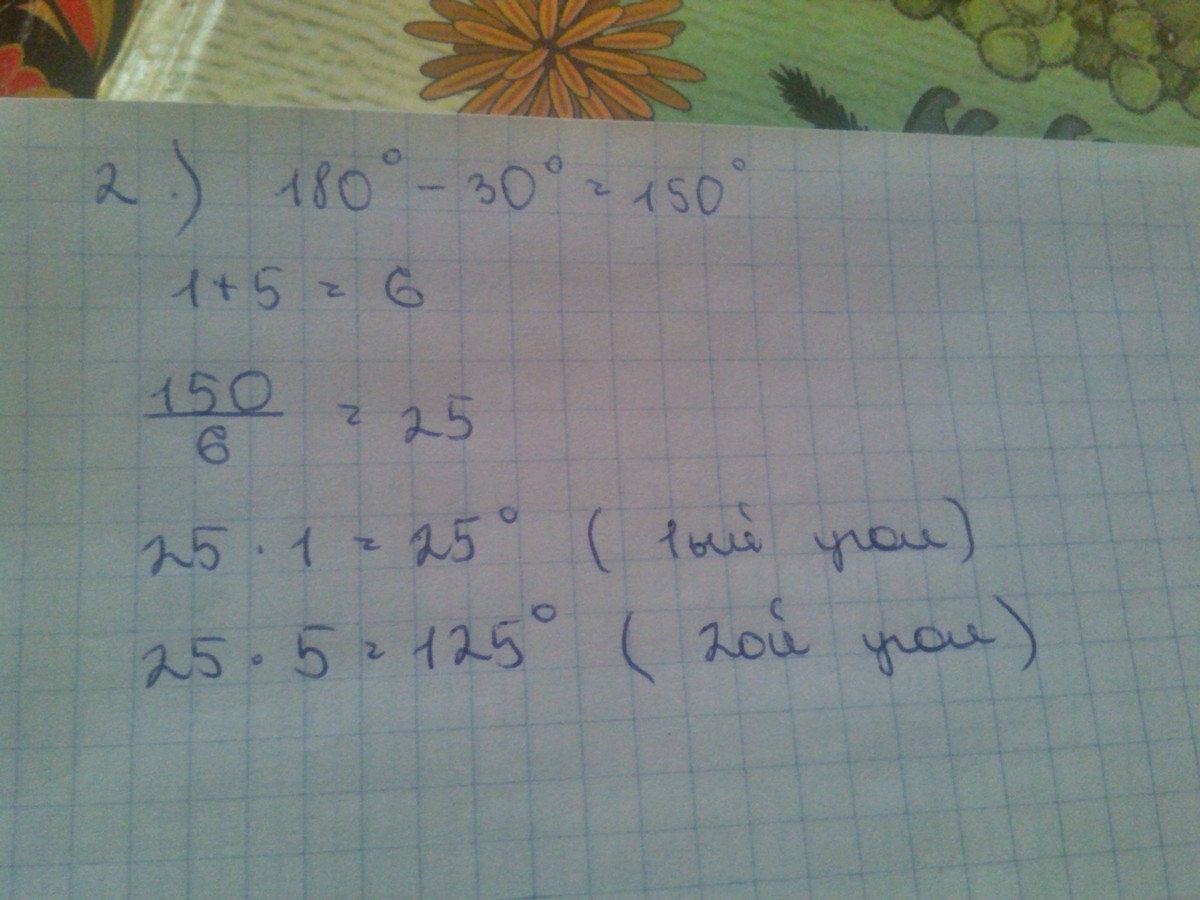 2.) 180° - 30° = 150°
1+5 = 6
150
6
= 25
25 · 1 = 25° ( 1ый угол)
25 · 5 = 125° ( 2ой угол)